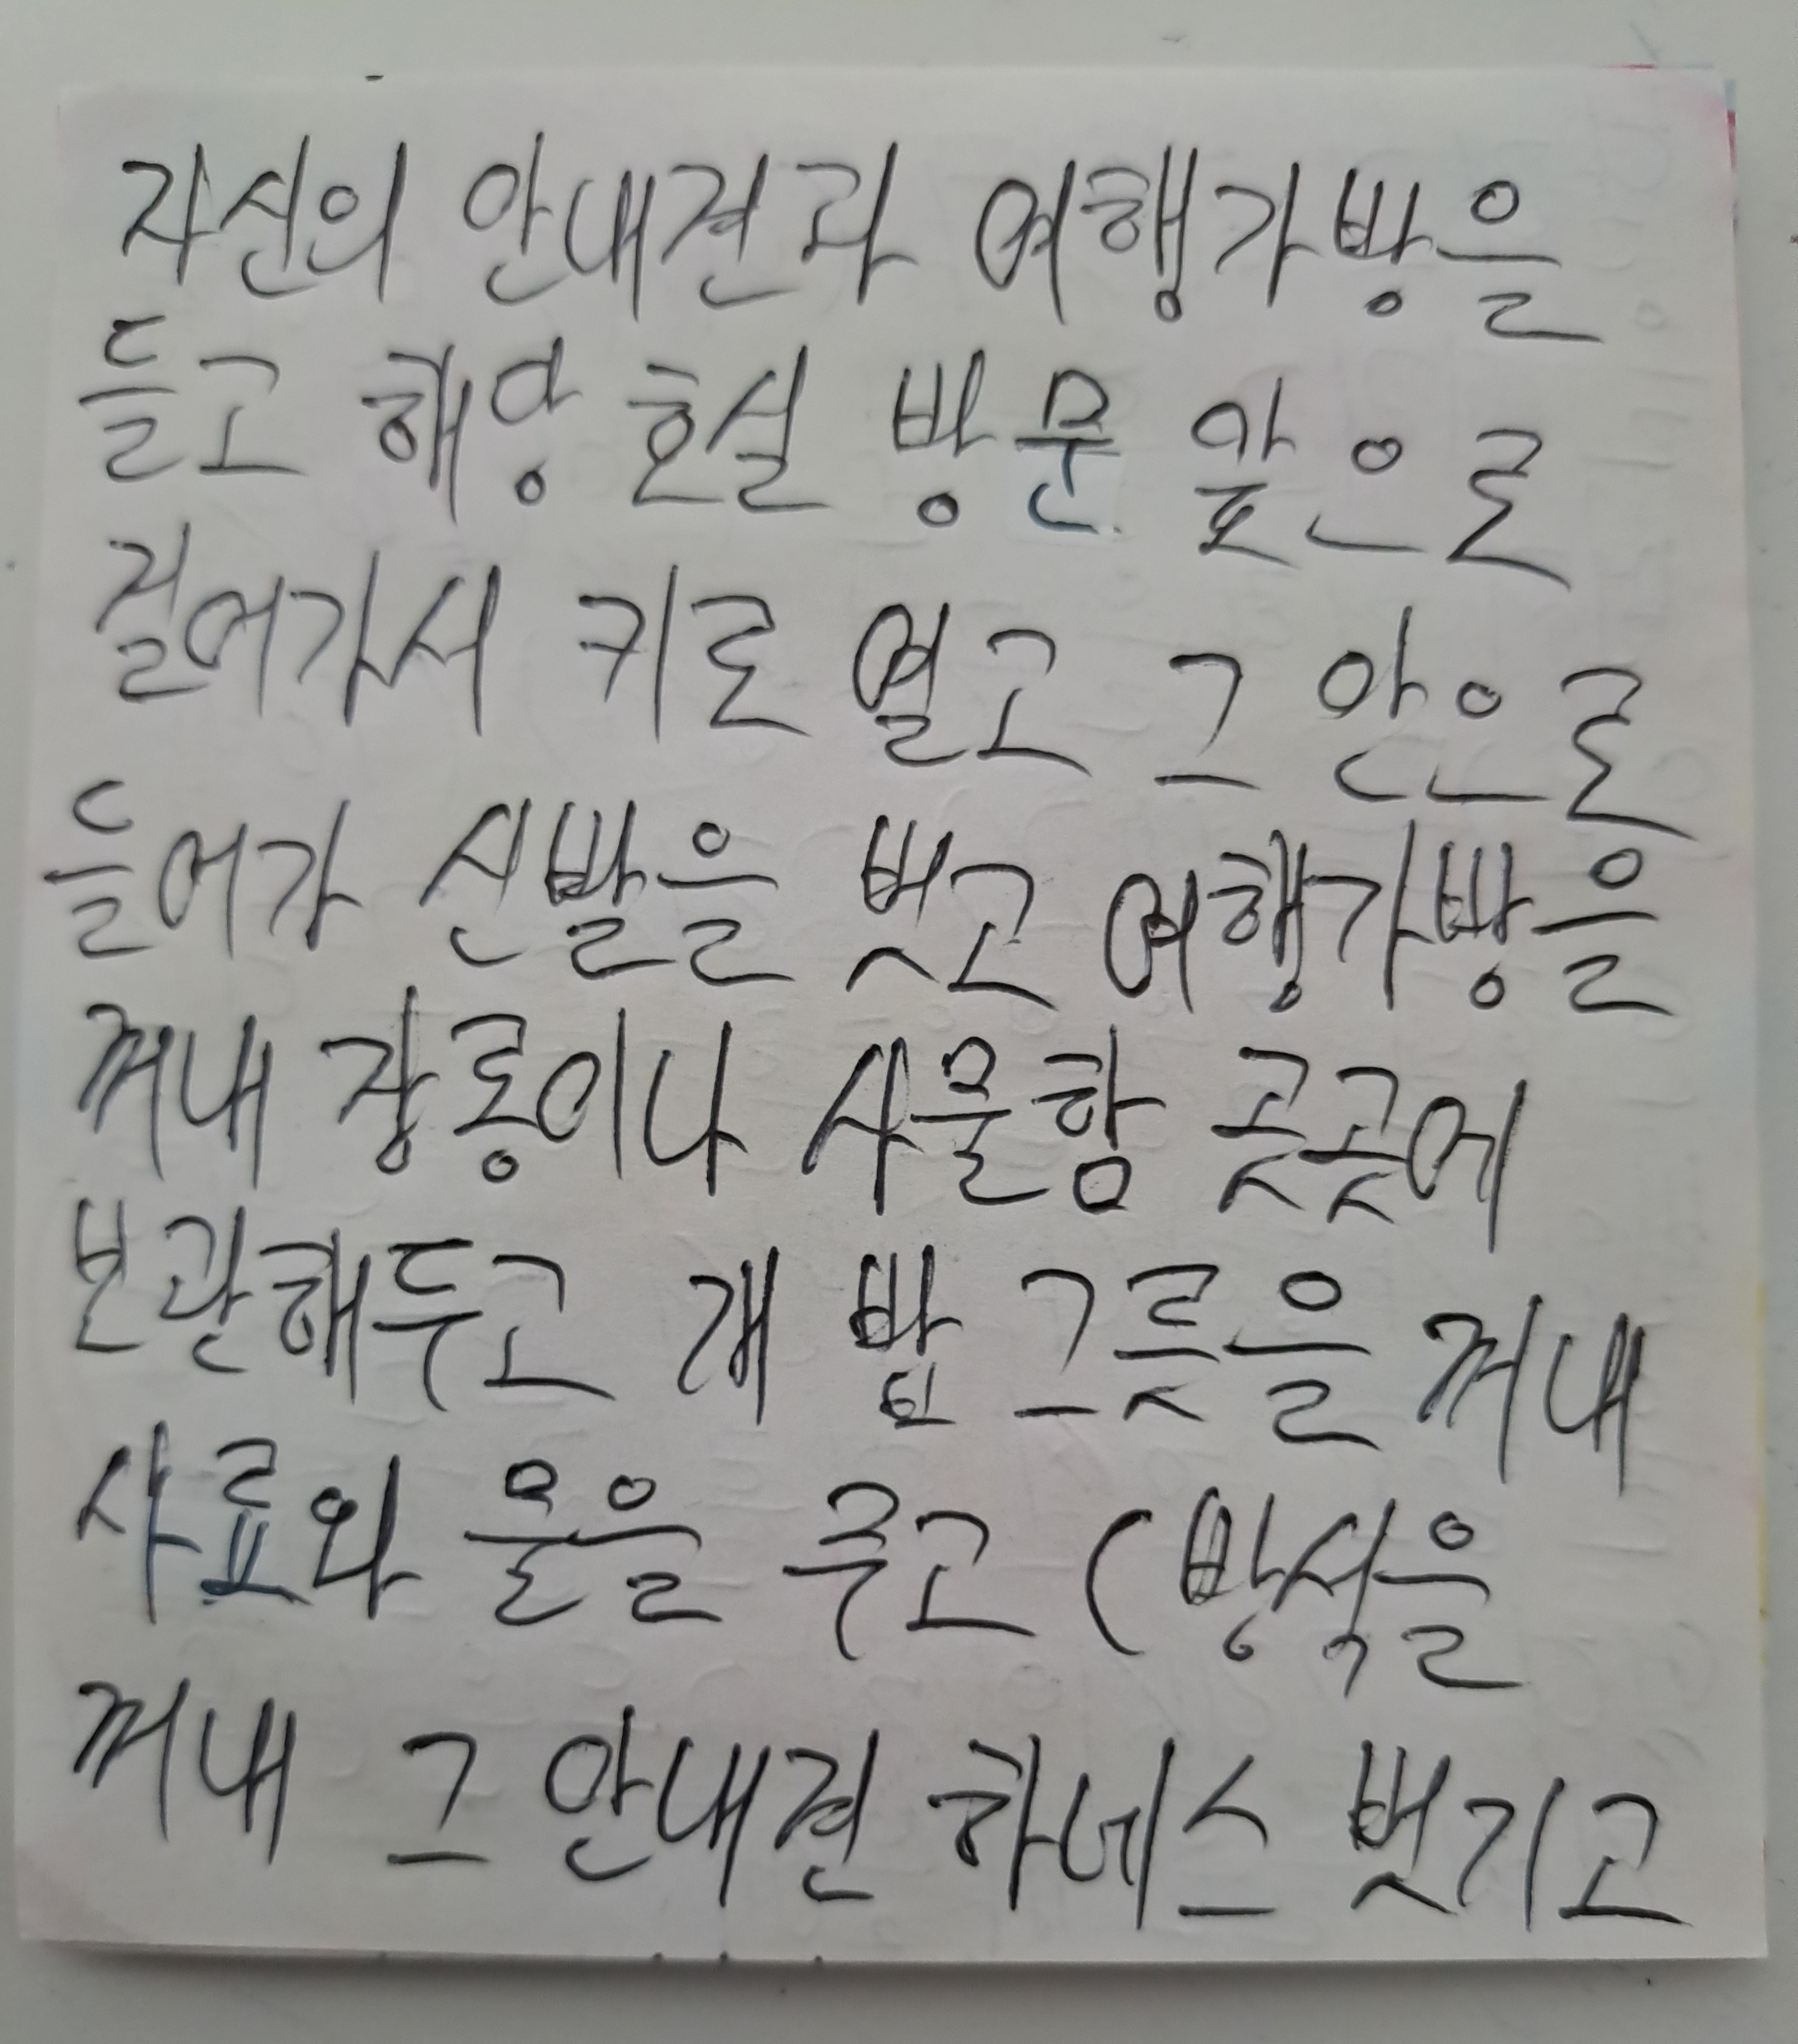 자신의 안내견과 여행가방을
들고 해당 호실 방문 앞으로
걸어가서 키로 열고 그 안으로
들어가 신발을 벗고 여행가방을
꺼내 장롱이나 사물함 곳곳에
보관해두고 개 밥 그릇을 꺼내
사료와 물을 주고 (방석을
꺼내 그 안내견 하네스 벗기고